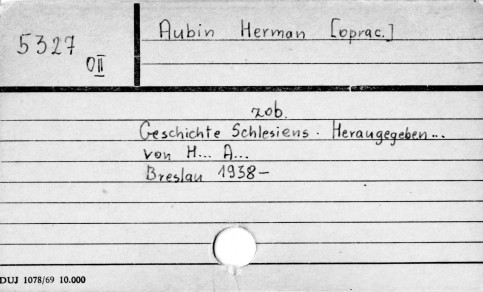 5327
OII
Aubin Herman [oprac.]
zob.
Geschichte Schlesiens. Heraugegeben...
von H... A...
Breslau 1938-
DUJ 1078/69 10.000